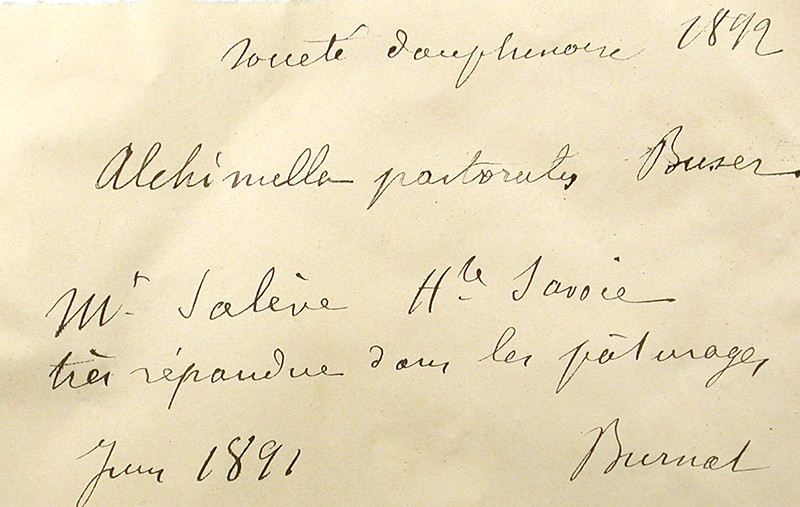 Société dauphinoise 1892
Alchimilla pastoralis Buser
Mt Salève Hte Savoie
très répandue dans les pâturages
Juin 1891 Burnat